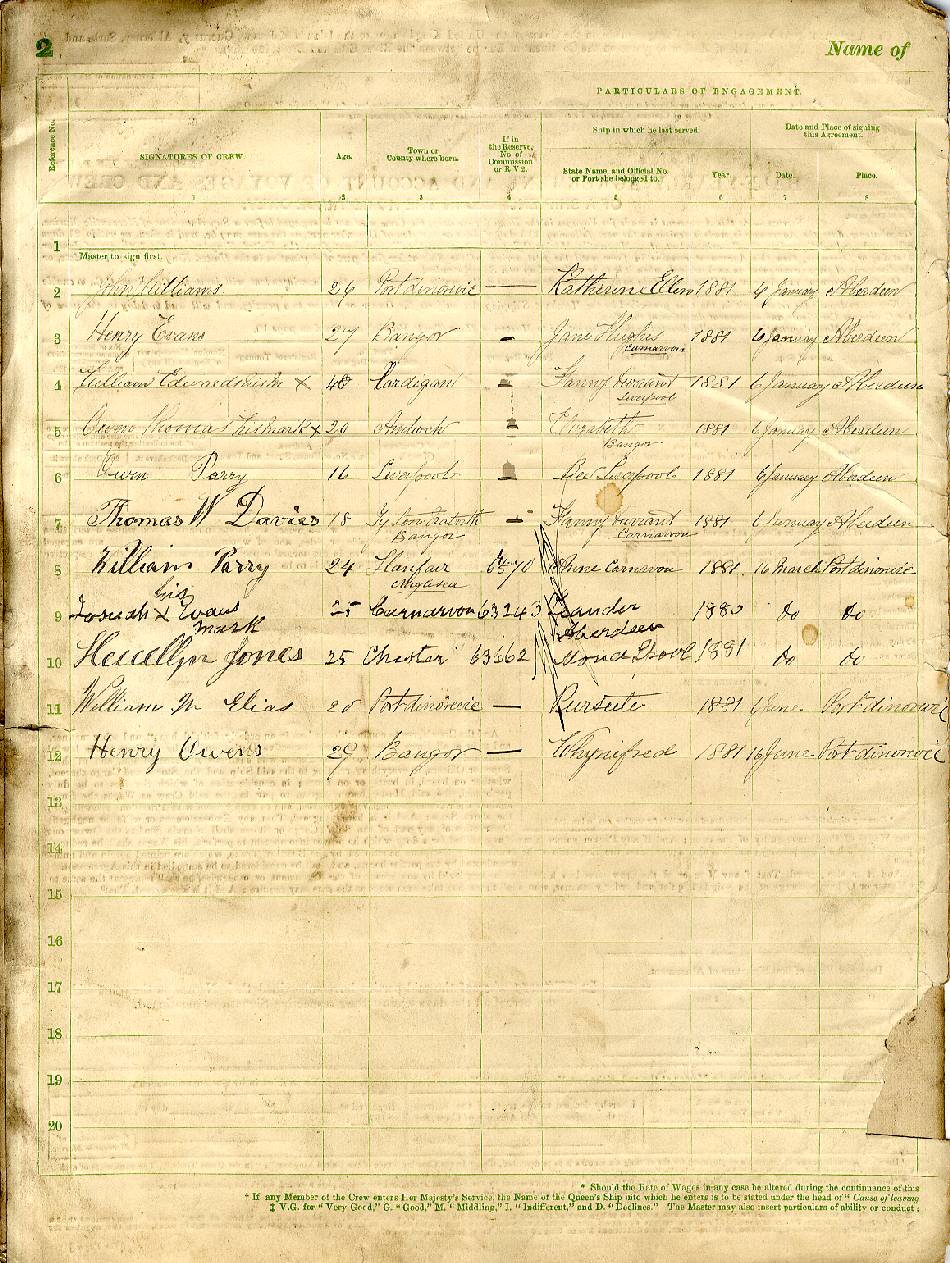 2
Name of
PARTICULARS OF ENGAGEMENT.
Reference No.
SIGNATURES OF CREW.
Age.
Town or County where born.
If in the Reserve, No. of Commission or R.V 2.
Ship in which he last served.
State Name and Official No. or Port she belonged to.
Year.
Date and Place of signing this Agreement.
Date.
Place.
1
Master to sign first.
2 John Williams 26 Portdinorwic — Katherine Ellen 1881 6 January Aberdeen
3 Henry Evans 27 Bangor - Jane Hughes Carnarvon 1881 6 January Aberdeen
4 William x 40 Cardigan Fanny Liverpool 1881 6 January Aberdeen
5 Owen Thomas his mark x 20 Elizabeth Bangor 1881 6 January Aberdeen
6 Owen Parry 16 Liverpool Liverpool 1881 6 January Aberdeen
7 Thomas W Davies 18 Bangor - Fanny Carnarvon 1881 6 January Aberdeen
8 William Parry 24 Llanfair Anglesea Carnarvon 1881 16 March Portdinorwic
9 Josuah his x mark Evans 25 Carnarvon Aberdeen 1880 do do
10 Llewellyn Jones 25 Chester 63662 Mona 1881 do do
11 William M Elias 20 Portdinorwic — Pursuite 1881 June Portdinorwic
12 Henry Owens 29 Bangor — Whynifred 1881 16 June Portdinorwic
13
14
15
16
17
18
19
20
* Should the Rate of Wages in any case be altered during the continuance of this
* If any Member of the Crew enters Her Majesty's Service, the Name of the Queen's Ship into which he enters is to be stated under the head of "Cause of leaving
‡ V.G. for "Very Good," G. "Good," M. "Middling," I. "Indifferent," and D. "Declines." The Master may also insert particulars of ability or conduct;